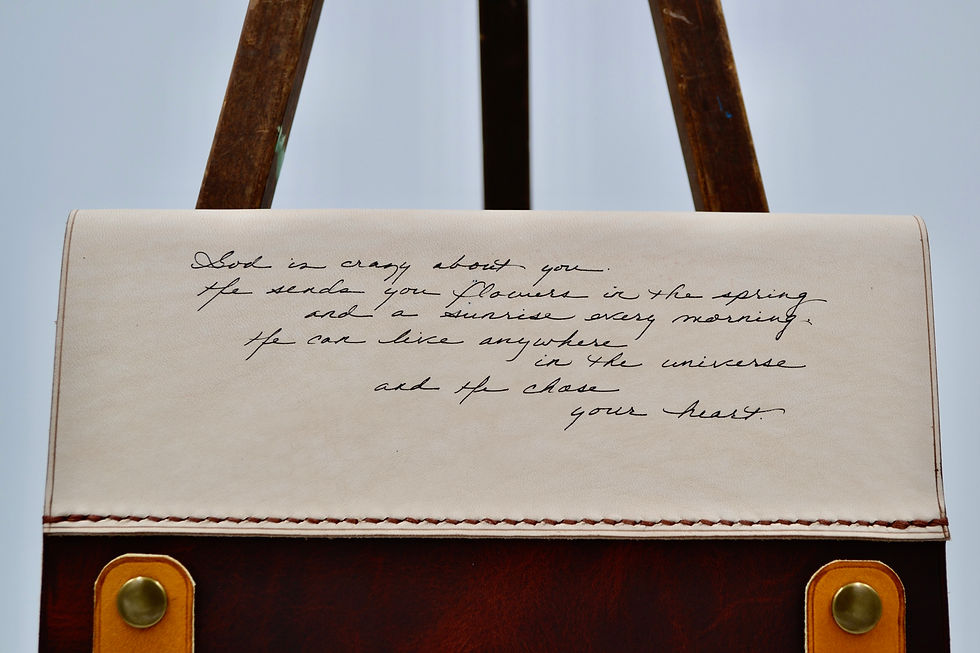 God is crazy about you.
He sends you flowers in the spring
and a sunrise every morning.
He can live anywhere
in the universe
and He chose
your heart.